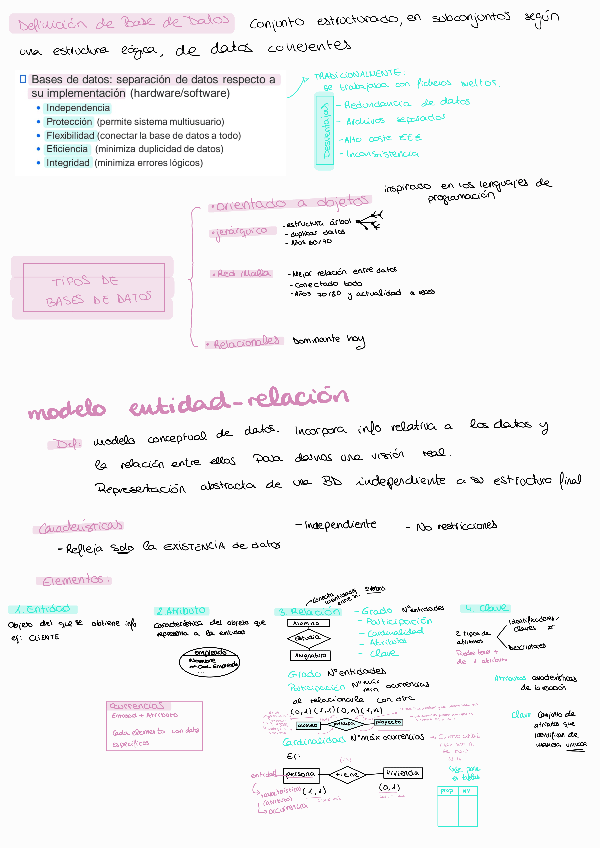 Definición de Base de Datos Conjunto estructurado, en subconjuntos según
una estructura lógica, de datos coherentes
Bases de datos: separación de datos respecto a
su implementación (hardware/software)
• Independencia
• Protección (permite sistema multiusuario)
• Flexibilidad (conectar la base de datos a todo)
• Eficiencia (minimiza duplicidad de datos)
• Integridad (minimiza errores lógicos)
TRADICIONALMENTE.
se trabajaba con ficheros sueltos.
Desventajas
- Redundancia de datos
- Archivos separados
- Alto coste
- Inconsistencia
TIPOS DE
BASES DE DATOS
• orientado a objetos
inspirado en los lenguajes de
programación
• jerárquico
- estructura árbol
- duplicar datos
- Años 60/70
• Red Malla
- Mejor relación entre datos
- conectado todo
- Años 70/80 y actualidad a veces
• Relacionales Dominante hoy
modelo entidad-relación
Def: modelo conceptual de datos. Incorpora info relativa a los datos y
la relación entre ellos para darnos una visión real.
Representación abstracta de una BD independiente a su estructura final
Características
- Independiente - No restricciones
- Refleja solo la EXISTENCIA de datos
Elementos:
1. Entidad
Objeto del que se obtiene info
ej: CLIENTE
2 Atributo
características del objeto que
representa a la entidad
empleado
Nombre
Cod. Empleado
...
Ocurrencias
Entidad + Atributo
Cada elemento con datos
específicos
3. Relación
Alumno
Estudia
Asignatura
- Grado Nº entidades
- Participación
- Cardinalidad
- Atributos
- Clave
Grado Nº entidades
Participación Nº máx
min ocurrencias
al relacionarla con otra
(0,1) (1,1) (0,n) (1,n)
proyecto
Cardinalidad Nº máx ocurrencias
Ej.
entidad
persona
tiene
vivienda
característica
(atributo)
ocurrencia
(1,1)
(0,1)
4. Clave
2 tipos de
atributos
Identificadores
claves
Descriptores
Puede haber +
de 1 atributo
Atributos características
de la relación
Clave Conjunto de
atributos que
identifican de
manera única